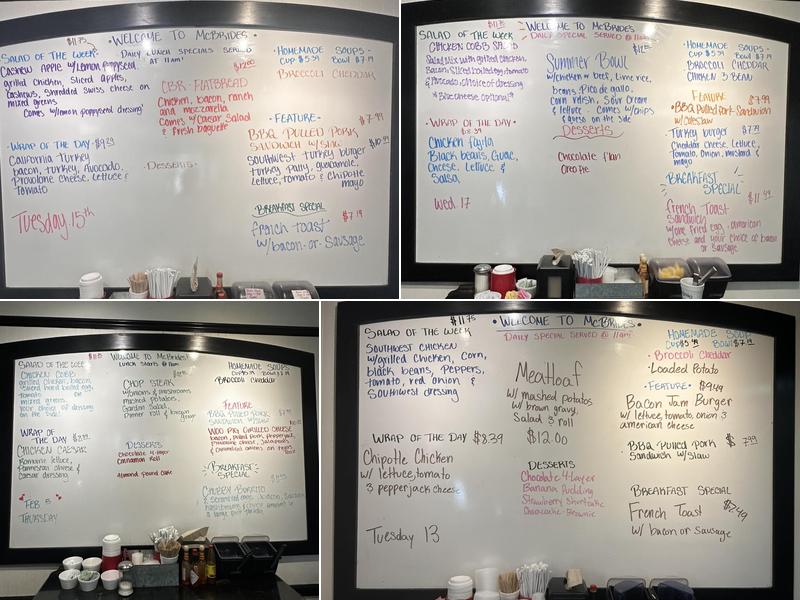 • WELCOME TO MCBRIDES •
$11.75
SALAD OF THE WEEK-
Cashew Apple w/Lemon poppyseed
grilled Chicken, Sliced Apples,
Cashews, Shredded Swiss cheese on
mixed greens
Comes w/Lemon poppyseed dressing
WRAP OF THE DAY $9.39
California Turkey
bacon, turkey, Avocado,
Provolone Cheese, Lettuce &
Tomato
Tuesday, 15th
DAILY LUNCH SPECIALS SERVED
AT 11am
$12.00
CBR FLATBREAD
Chicken, bacon, ranch
and mozzarella
Comes w/Caesar Salad
& fresh baguette
• DESSERTS •
•HOMEMADE SOUPS•
CUP $5.59 BOWL $7.19
BROCCOLI CHEDDAR
•FEATURE• $7.99
BBQ PULLED PORK
SANDWICH W/SLAW
Southwest turkey burger
turkey patty, guacamole,
Lettuce, tomato & Chipotle
mayo
BREAKFAST SPECIAL
$7.19
french toast
w/bacon or Sausage
• WELCOME TO MCBRIDES •
DAILY SPECIAL SERVED @ 11am
SALAD OF THE WEEK
CHICKEN COBB SALAD
Salad Mix with grilled chicken,
Bacon, Sliced boiled egg, tomato
& Avocado, choice of dressing
* Blue cheese optional *
WRAP OF THE DAY
$8.39
Chicken fajita
Black beans, Guac,
Cheese, Lettuce &
Salsa
Wed 17
Summer Bowl
w/chicken or beef, Lime rice,
beans, Pico de gallo,
Corn relish, Sour Cream
& lettuce. Comes w/chips
& queso on the side
Desserts
Chocolate flan
Oreo Pie
•HOMEMADE SOUPS
CUP $5.59 BOWL $7.19
BROCCOLI CHEDDAR
CHICKEN 3 BEAN
FEATURE
$7.99
•BBQ Pulled Pork Sandwich
w/coleslaw
Turkey burger $7.79
Cheddar Cheese, Lettuce,
Tomato, Onion, mustard &
mayo
BREAKFAST
SPECIAL
$11.49
french Toast
Sandwich
w/one fried egg, american
Cheese and your choice of bacon
or Sausage
SALAD OF THE WEEK
CHICKEN COBB
grilled Chicken, bacon,
sliced hard boiled egg,
tomato on
mixed greens.
Your choice of dressing
on the Side!
WRAP OF
THE DAY
CHICKEN CAESAR
Romaine lettuce,
Parmesan cheese &
Caesar dressing
FEB 5
THURSDAY
WELCOME TO MCBRIDES!
LUNCH STARTS @ 11am
CHOP STEAK
w/onions & mushrooms
mashed potatoes,
Garden Salad,
Dinner roll & brown
gravy
DESSERTS
Chocolate 4-layer
Cinnamon Roll
Almond Pound Cake
HOMEMADE SOUPS
CUP $5.59 BOWL $7.19
BROCCOLI Cheddar
FEATURE
BBQ PULLED PORK
SANDWICH W/SLAW
WOO PIG GRILLED CHEESE
bacon, pulled Pork, pepperjack,
provolone Cheese, Jalapeños
& Caramelized onions on Texas
toast
BREAKFAST
SPECIAL
CHUBBY BURRITO
$11.75
• WELCOME TO MCBRIDES •
DAILY SPECIAL SERVED @ 11am
SALAD OF THE WEEK
SOUTHWEST CHICKEN
w/grilled Chicken, Corn,
black beans, Peppers,
tomato, red onion &
Southwest dressing
WRAP OF THE DAY $8.39
Chipotle Chicken
w/ lettuce, tomato
& pepperjack cheese
Tuesday 13
Meatloaf
w/ mashed potatos
w/ brown gravy
Salad & roll
$12.00
DESSERTS
Chocolate 4-Layer
Banana Pudding
Strawberry Shortcake
Chocolate Brownie
HOMEMADE SOUP
CUP $5.59 BOWL $7.19
• Broccoli Cheddar
•Loaded Potato
•FEATURE• $9.49
Bacon Jam Burger
w/ lettuce, tomato, onion &
american cheese
BBQ Pulled Pork $7.99
Sandwich w/Slaw
BREAKFAST SPECIAL
French Toast $7.49
w/ bacon or Sausage